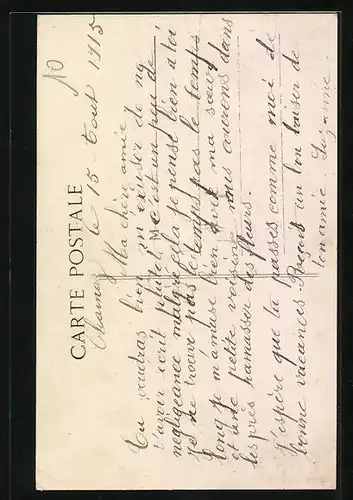 10
CARTE POSTALE
le 15 Aout 1915
Ma chère amie
Tu voudras bien m'excuser de ne
t'avoir écrit plutôt, c'est un peu de
négligeance malgré cela je pense bien à toi
Je ne trouve pas le temps
long je m'amuse bien avec ma sœur
et une petite voisine nous courons dans
les près ramasser des fleurs.
J'espère que tu passes comme moi de
bonne vacances Reçois un bon baiser de
ton amie